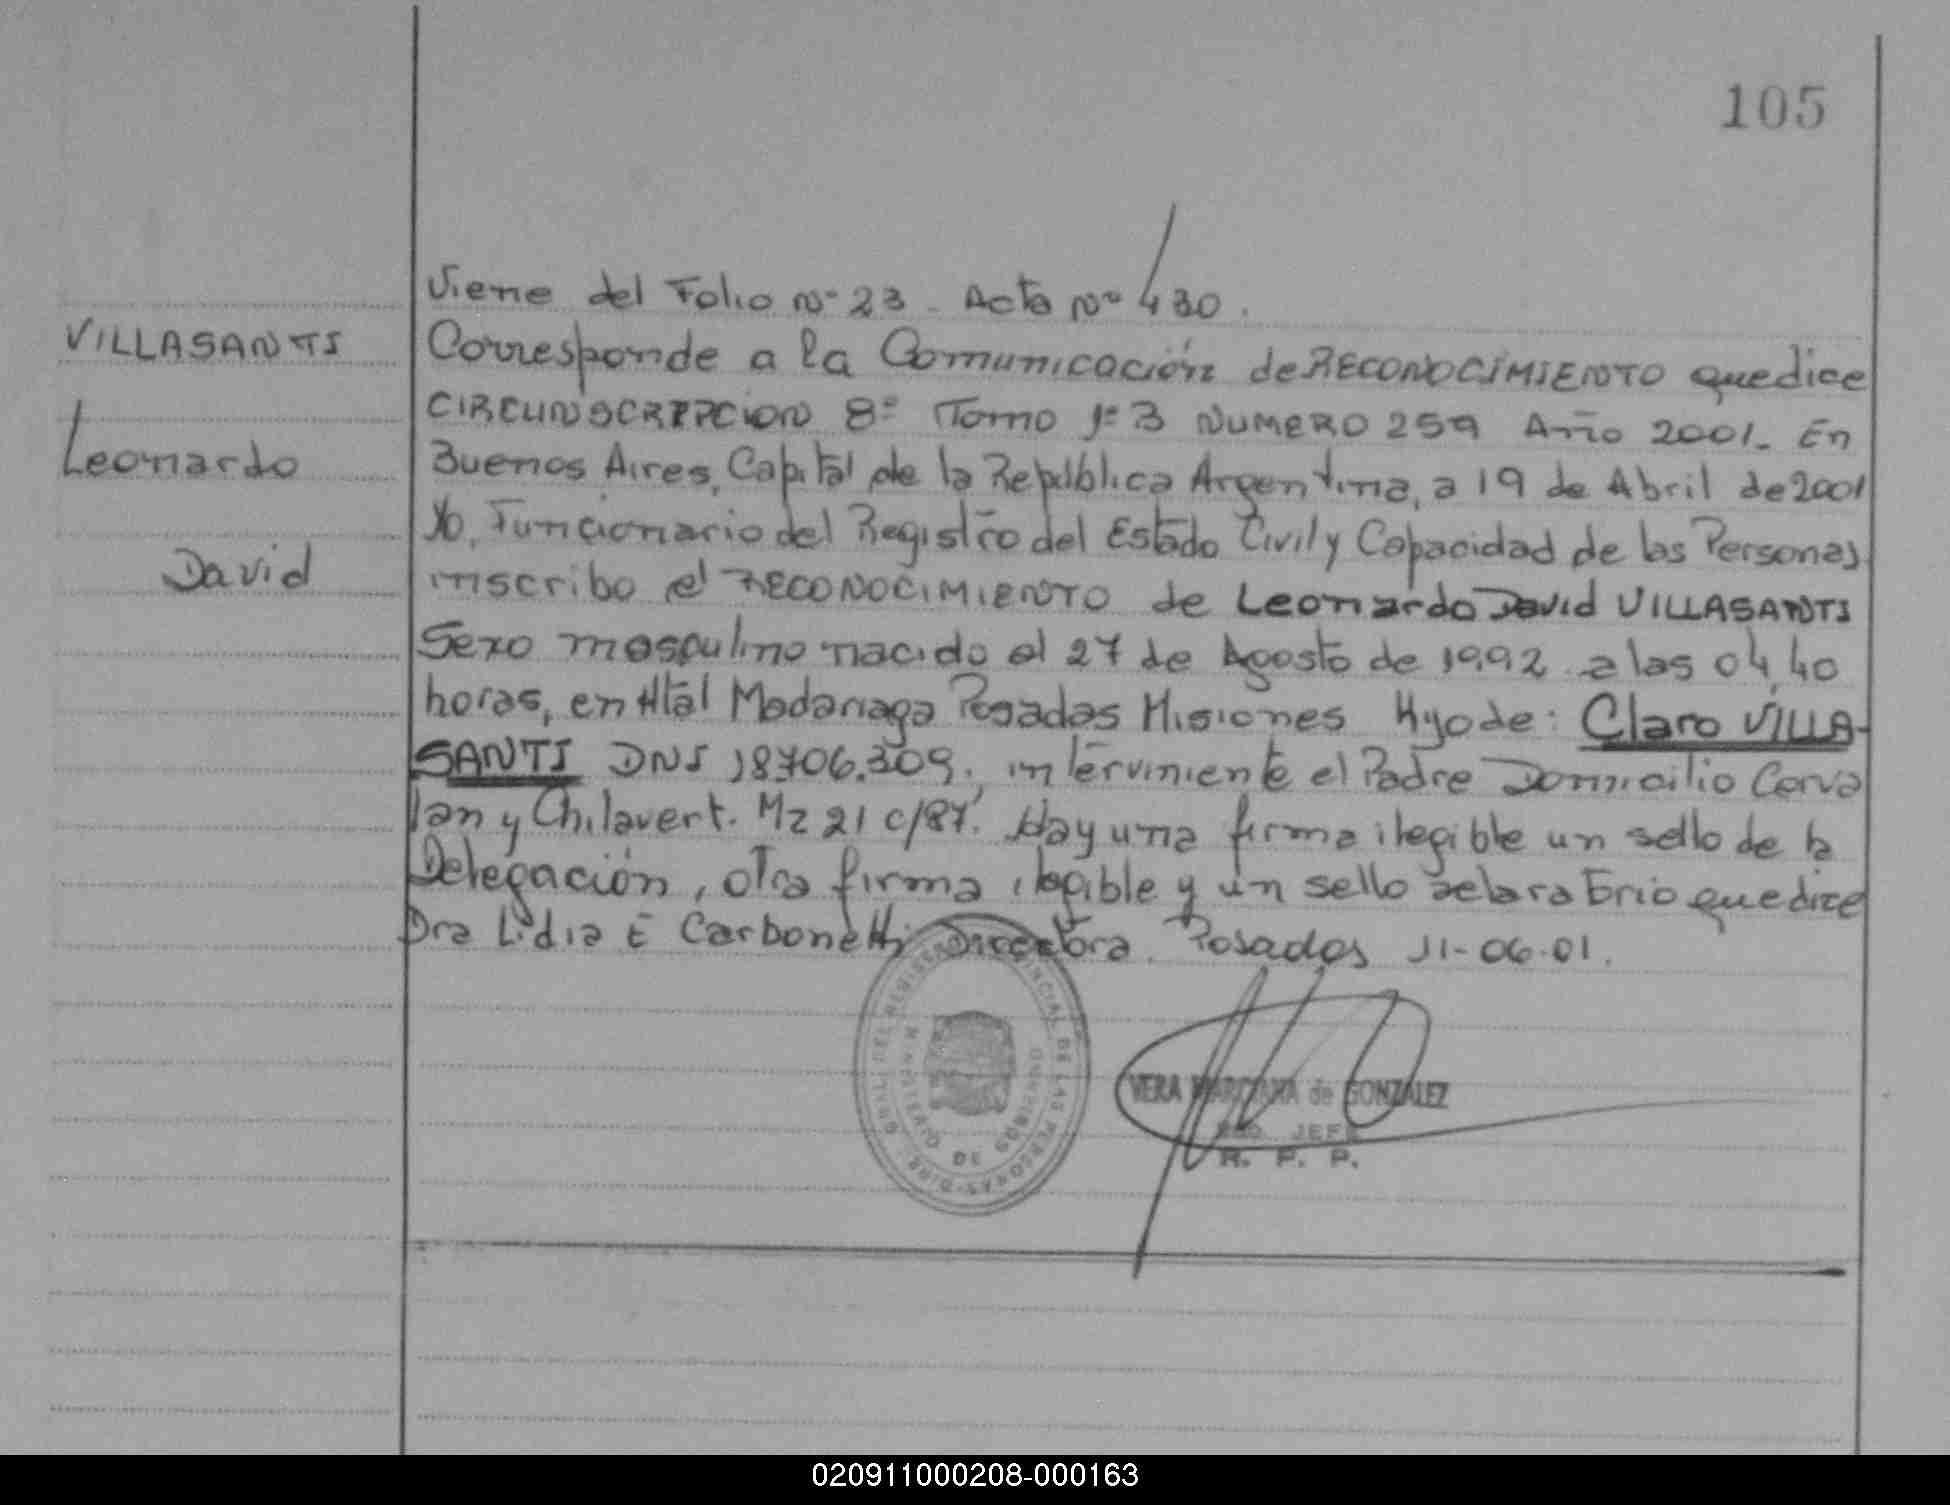 105
Viene del Folio Nº 23 - Acta Nº 430.
VILLASANTI
Leonardo
David
Corresponde a la Comunicación de RECONOCIMIENTO que dice
CIRCUNSCRIPCION 8º Tomo 1º B NUMERO 259 Año 2001. En
Buenos Aires, Capital de la República Argentina, a 19 de Abril de 2001
Yo, Funcionario del Registro del Estado Civil y Capacidad de las Personas
inscribo el RECONOCIMIENTO de Leonardo David VILLASANTI
Sexo masculino nacido el 27 de Agosto de 1992 a las 04,40
horas, en Htal Madariaga Posadas Misiones Hijo de: Claro VILLA-
SANTI DNI 18706.309. interviniente el Padre Domicilio Corva
lan y Chilavert. Mz 21 c/87. Hay una firma ilegible un sello de la
Delegación, otra firma ilegible y un sello aclaratorio que dice
Dra Lidia E Carbonetti Directora. Posadas 11-06-01.
VERA MARCIANA de GONZALEZ
JEFE
R. P. P.
020911000208-000163